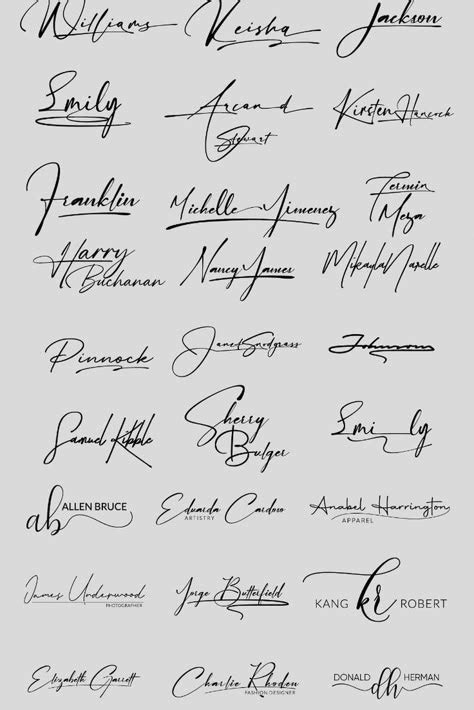 Williams
Keisha
Jackson
Emily
Arcand
Stewart
Kirsten Hancock
Franklin
Michelle Jimenez
Fermin
Meza
Harry
Buchanan
Nancy James
Mikayla Narelle
Pinnock
Jane Snodgrass
Johnson
Samuel Kibble
Sherry
Bulger
Emily
ab ALLEN BRUCE
Eduarda Cardoso
ARTISTRY
Anabel Harrington
APPAREL
James Underwood
PHOTOGRAPHER
Jorge Butterfield
KANG kr ROBERT
Elizabeth Garrett
Charlie Rhoden
FASHION DESIGNER
DONALD dh HERMAN